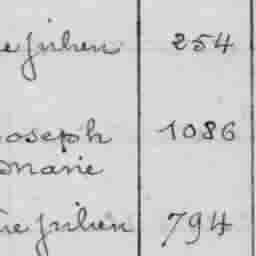 e Julien 254
Joseph 1086
Marie
re Julien 794